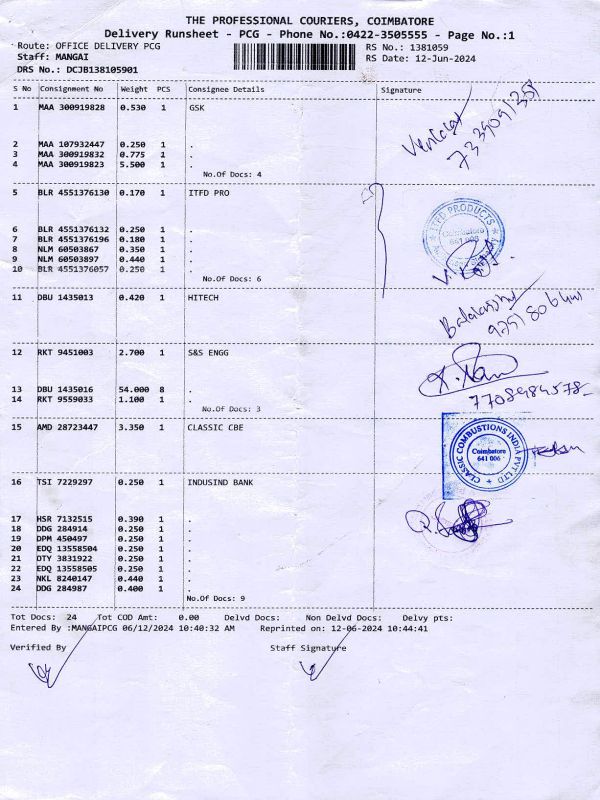 THE PROFESSIONAL COURIERS, COIMBATORE
Delivery Runsheet - PCG - Phone No.:0422-3505555 - Page No.:1
Route: OFFICE DELIVERY PCG
RS No.: 1381059
Staff: MANGAI
RS Date: 12-Jun-2024
DRS No.: DCJB138105901
S No Consignment No Weight PCS Consignee Details Signature
1 MAA 300919828 0.530 1 GSK
2 MAA 107932447 0.250 1 .
3 MAA 300919832 0.775 1 .
4 MAA 300919823 5.500 1 .
No.Of Docs: 4
5 BLR 4551376130 0.170 1 ITFD PRO
6 BLR 4551376132 0.250 1 .
7 BLR 4551376196 0.180 1 .
8 NLM 60503867 0.350 1 .
9 NLM 60503897 0.440 1 .
10 BLR 4551376057 0.250 1 .
No.Of Docs: 6
ITFD PRODUCTS
Coimbatore
641 006
11 DBU 1435013 0.420 1 HITECH
12 RKT 9451003 2.700 1 S&S ENGG
13 DBU 1435016 54.000 8 .
14 RKT 9559033 1.100 1 .
No.Of Docs: 3
7708984578
15 AMD 28723447 3.350 1 CLASSIC CBE
CLASSIC COMBUSTIONS INDIA PVT LTD
Coimbatore
641 006
16 TSI 7229297 0.250 1 INDUSIND BANK
17 HSR 7132515 0.390 1 .
18 DDG 284914 0.250 1 .
19 DPM 450497 0.250 1 .
20 EDQ 13558504 0.250 1 .
21 DTY 3831922 0.250 1 .
22 EDQ 13558505 0.250 1 .
23 NKL 8240147 0.440 1 .
24 DDG 284987 0.400 1 .
No.Of Docs: 9
Tot Docs: 24 Tot COD Amt: 0.00 Delvd Docs: Non Delvd Docs: Delvy pts:
Entered By :MANGAIPCG 06/12/2024 10:40:32 AM Reprinted on: 12-06-2024 10:44:41
Verified By Staff Signature